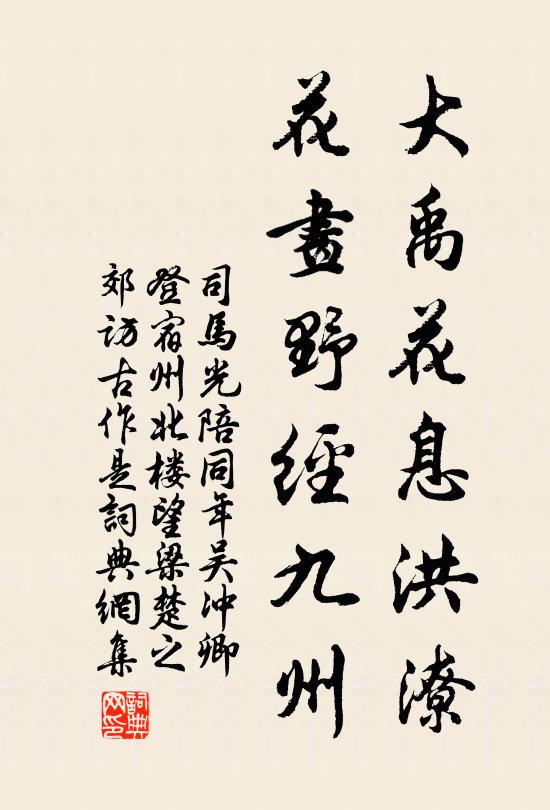 大禹花息洪潦
花畫野經九州
司馬光陪同年吴冲卿
登宿州北楼望梁楚之
郊访古作是詞典網集
詞典网印